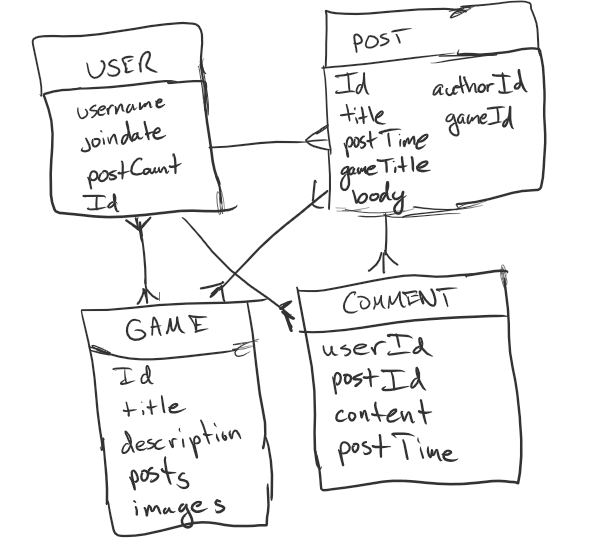 USER
username
joindate
postCount
Id
POST
Id
title
postTime
gameTitle
body
authorId
gameId
GAME
Id
title
description
posts
images
COMMENT
userId
postId
content
postTime